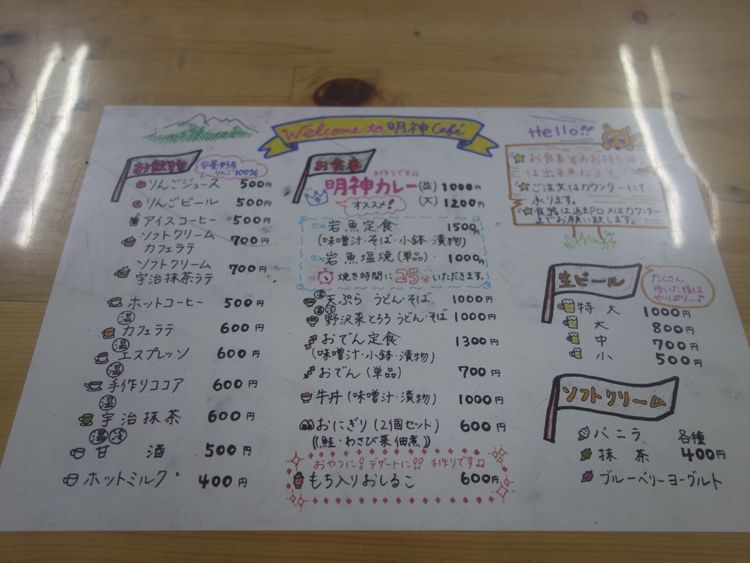 Welcome to 明神 Café
お飲物
安曇野産
りんご100%
りんごジュース 500円
りんごビール 500円
アイスコーヒー 500円
ソフトクリーム
カフェラテ 700円
ソフトクリーム
宇治抹茶ラテ 700円
ホットコーヒー 500円
温
カフェラテ 600円
温
エスプレッソ 600円
温
手作りココア 600円
温
宇治抹茶 600円
温 冷
甘酒 500円
ホットミルク 400円
お食事
手作りです♫
明神カレー (並) 1000円
オススメ! (大) 1200円
岩魚定食 1500円
(味噌汁・そば・小鉢・漬物)
岩魚塩焼(単品) 1000円
焼き時間に25分いただきます。
温 冷
天ぷら うどん・そば 1000円
温 冷
野沢菜とろろ うどん・そば 1000円
おでん定食 1300円
(味噌汁・小鉢・漬物)
おでん(単品) 700円
牛丼(味噌汁・漬物) 1000円
おにぎり(2個セット) 600円
(鮭・わさび葉佃煮)
おやつに!! デザートに!! 手作りです♫
もち入りおしるこ 600円
Hello!!
☆お食事等のお持ち込み
は出来ません。
☆ご注文はカウンターにて
承ります。
☆食器は返却口又はカウンター
までお願い致します。
生ビール
たくさん
歩いた後は
やっぱり…♪
特大 1000円
大 800円
中 700円
小 500円
ソフトクリーム
バニラ 各種
抹茶 400円
ブルーベリーヨーグルト